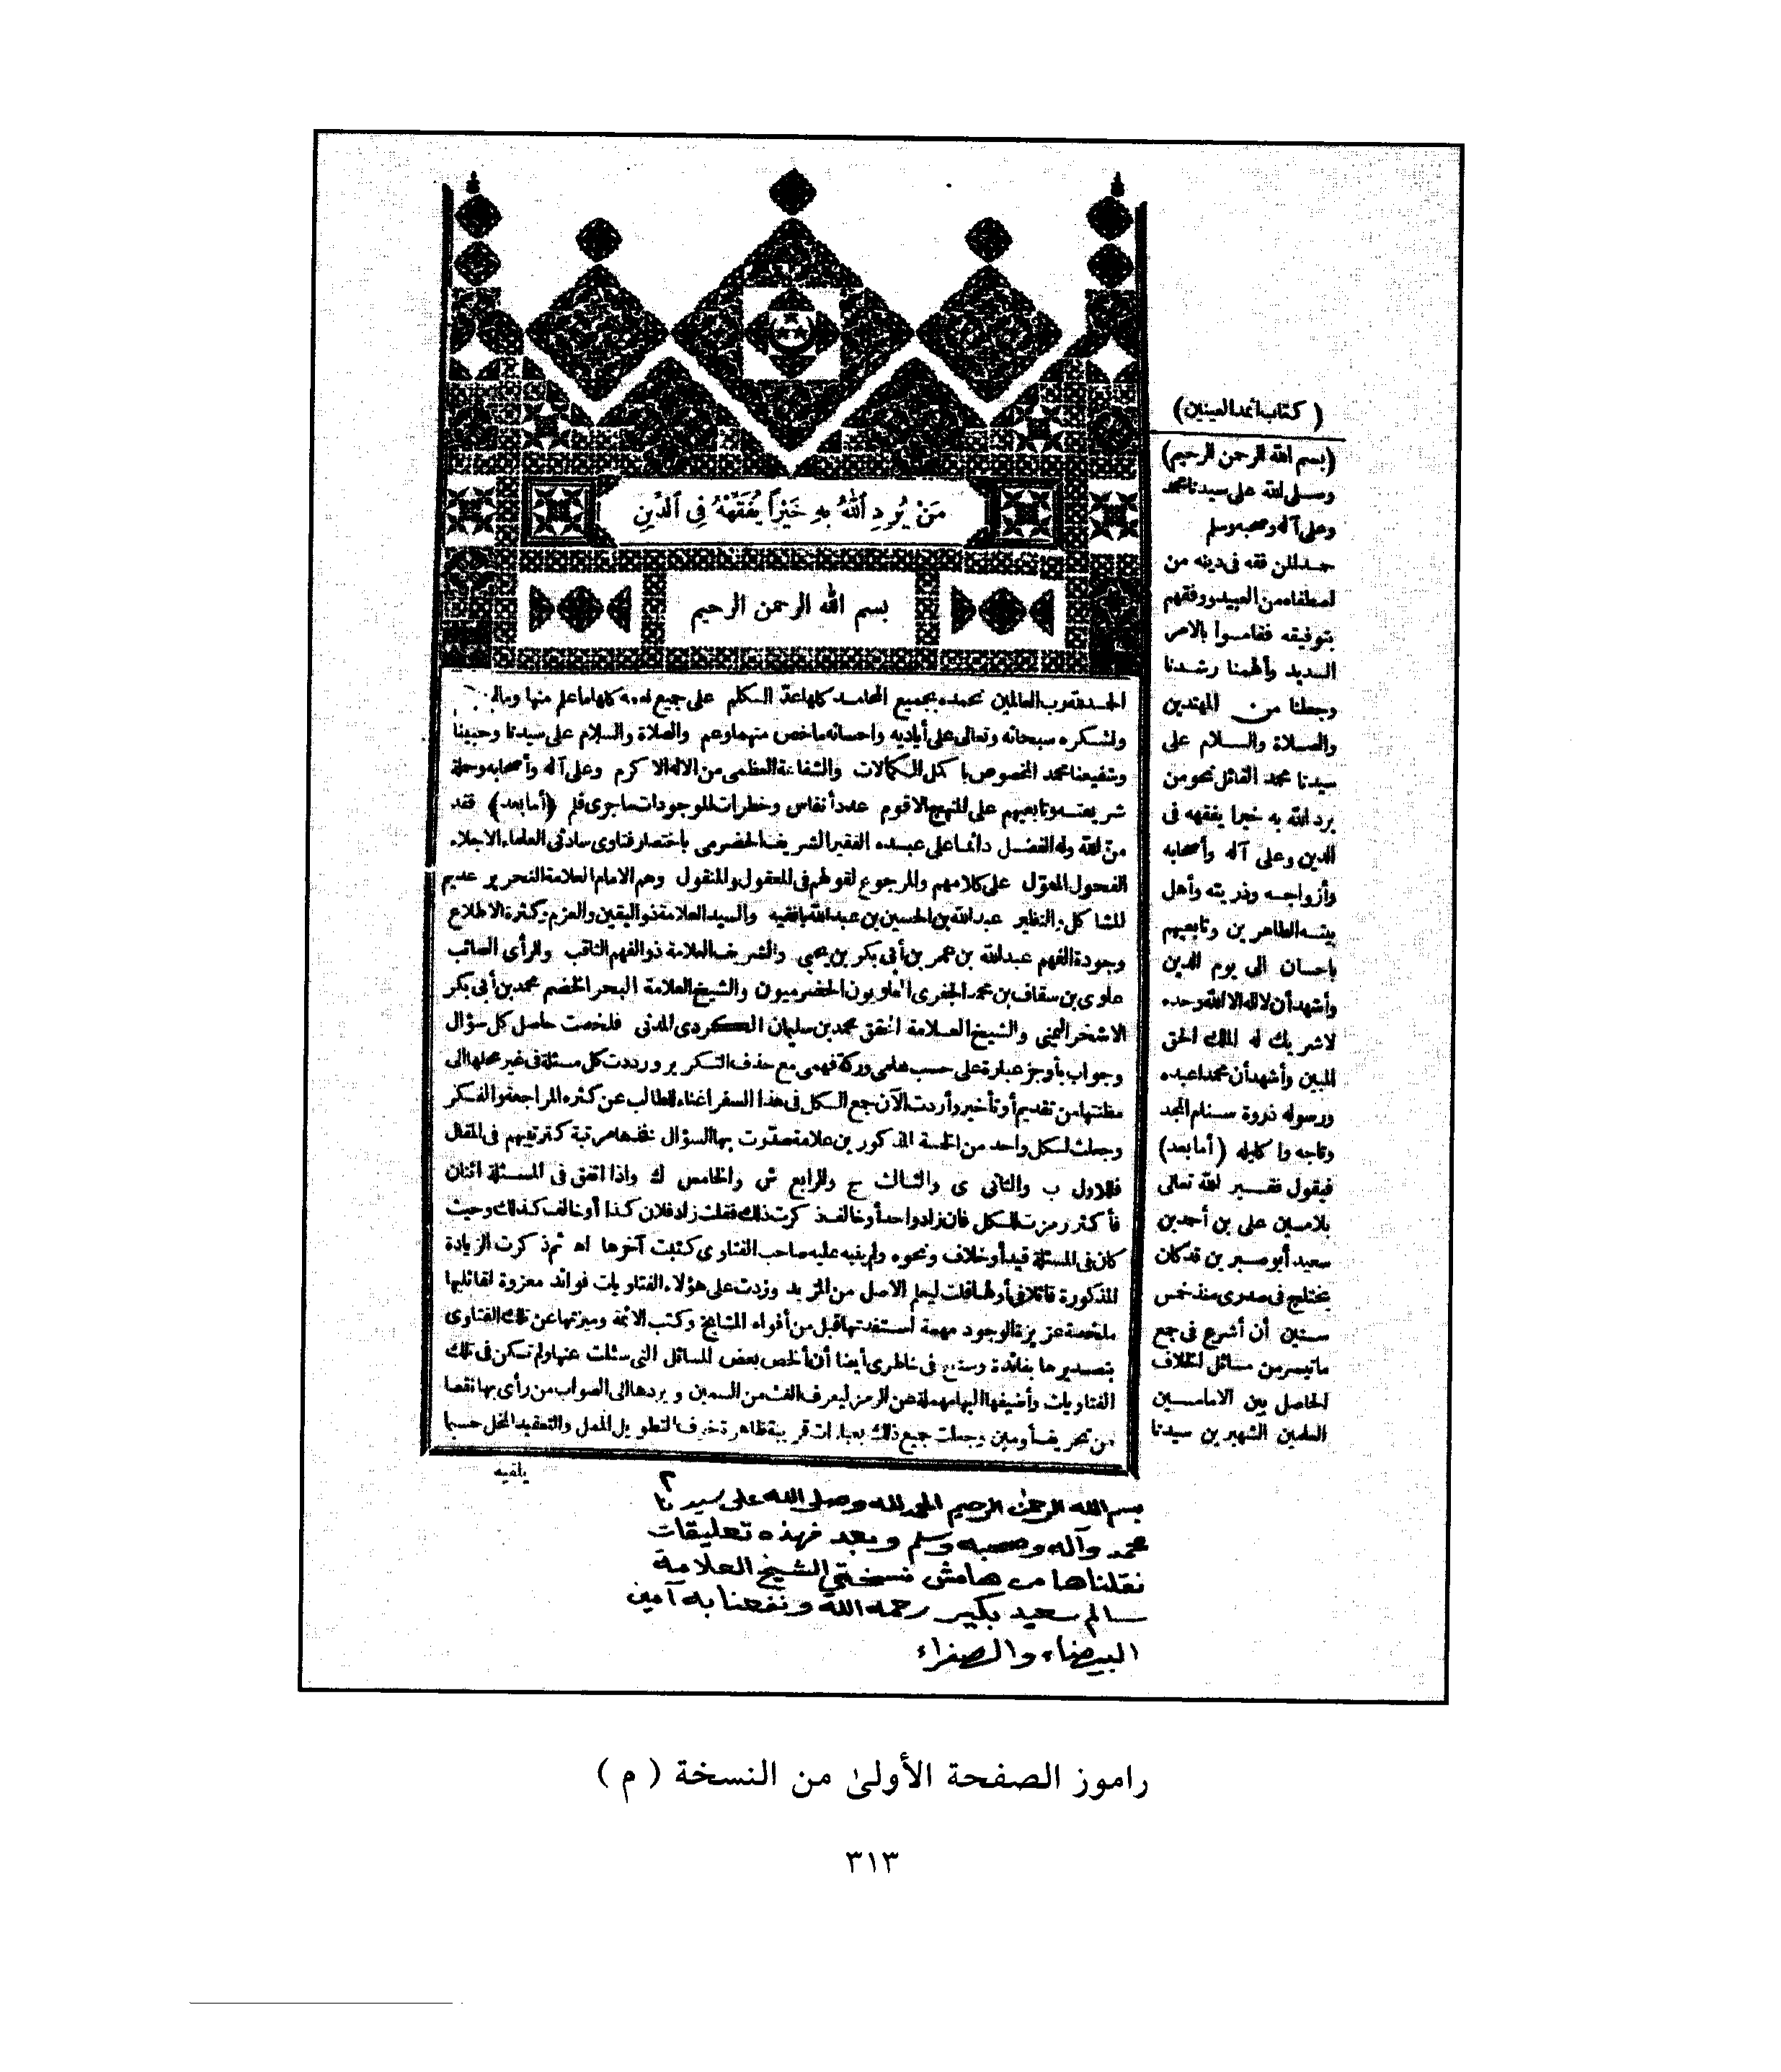 من يرد الله به خيرا يفقهه في الدين
بسم الله الرحمن الرحيم
الحمد لله رب العالمين نحمده بجميع المحامد كلها عدّ الكلم على جميع نعمه كلها ما علم منها وما لم
ونشكره سبحانه وتعالى على أياديه واحسانه ما خص منهما وعم والصلاة والسلام على سيدنا وحبيبنا
وشفيعنا محمد المخصوص باكمل الكمالات والشفاعة العظمى من الاله الاكرم وعلى آله وأصحابه وحملة
شريعته وتابعيهم على المنهج الاقوم عدد أنفاس وخطرات الموجودات ما جرى قلم (أما بعد) فقد
منّ الله وله الفضل دائما على عبده الفقير الشريف الحضرمى باختصار فتاوى سادتى العلماء الاجلاء
الفحول المعوّل على كلامهم والمرجوع لقولهم فى المعقول والمنقول وهم الامام العلامة النحرير عديم
المشاكل والنظير عبدالله بن الحسين بن عبدالله بافقيه والسيد العلامة ذو اليقين والعزم وكثرة الاطلاع
وجودة الفهم عبدالله بن عمر بن أبى بكر بن يحيى والشريف العلامة ذو الفهم الثاقب والرأى الصائب
علوى بن سقاف بن محمد الجفرى العلويون الحضرميون والشيخ العلامة البحر الخضم محمد بن أبى بكر
الاشخر اليمنى والشيخ العلامة المحقق محمد بن سليمان الكردى المدنى فلخصت حاصل كل سؤال
وجواب بأوجز عبارة على حسب علمى وركة فهمى مع حذف التكرير ورددت كل مسئلة فى غير محلها الى
مظنتها من تقديم أو تأخير وأردت الآن جمع الكل فى هذا السفر اغناء للطالب عن كثرة المراجعة والفكر
وجعلت لكل واحد من الخمسة المذكورين علامة صدّرت بها السؤال تخصها مرتبة كترتيبهم فى المقال
فللاول ب والثانى ى والثالث ج والرابع ش والخامس ك واذا اتفق فى المسئلة اثنان
فأكثر رمزت للكل فان زاد واحد أو خالف ذكرت ذلك فقلت زاد فلان كذا أو خالف كذلك وحيث
كان فى المسئلة قيد أو خلاف ونحوه ولم ينبه عليه صاحب الفتاوى كتبت آخرها اه ثم ذكرت الزيادة
المذكورة قائلا فى أولها قلت ليعلم الاصل من المزيد وزدت على هؤلاء الفتاويات فوائد معزوة لقائليها
ملخصة عزيزة الوجود مهمة استفدتها قبل من أفواه المشايخ وكتب الائمة وميزتها عن تلك الفتاوى
بتصديرها بفائدة وسنح فى خاطرى أيضا أن ألخص بعض المسائل التى سئلت عنها ولم تكن فى تلك
الفتاويات وأضيفها اليها مهملة عن الرمز ليعرف الغث من السمين ويردها الى الصواب من رأى بها نقصا
من تحريف أو مين وجعلت جميع ذلك بعبارات قريبة ظاهرة خوف التطويل الممل والتعقيد المخل حسبما
يلقيه
(كتاب اثمد العينين)
(بسم الله الرحمن الرحيم)
وصلى الله على سيدنا محمد
وعلى آله وصحبه وسلم
حمدا لمن فقه فى دينه من
اصطفاه من العبيد ووفقهم
بتوفيقه فقاموا بالامر
السديد وألهمنا رشدنا
وجعلنا من المهتدين
والصلاة والسلام على
سيدنا محمد القائل نحو من
يرد الله به خيرا يفقهه فى
الدين وعلى آله وأصحابه
وأزواجه وذريته وأهل
بيته الطاهرين وتابعيهم
باحسان الى يوم الدين
وأشهد أن لا اله الا الله وحده
لا شريك له الملك الحق
المبين وأشهد أن محمدا عبده
ورسوله ذروة سنام المجد
وتاجه واكليله (أما بعد)
فيقول فقير الله تعالى
بلامين على بن أحمد بن
سعيد أبو صبرين قد كان
يختلج فى صدرى منذ خمس
سنين أن أشرع فى جمع
ما تيسر من مسائل الخلاف
الحاصل بين الامامين
العلمين الشهيرين سيدنا
بسم الله الرحمن الرحيم الحمد لله وصلى الله على سيدنا
محمد وآله وصحبه وسلم وبعد فهذه تعليقات
نقلناها من هامش نسختي الشيخ العلامة
سالم سعيد بكير رحمه الله ونفعنا به آمين
البيضاء والصفراء
راموز الصفحة الأولىٰ من النسخة ( م )
٣١٣